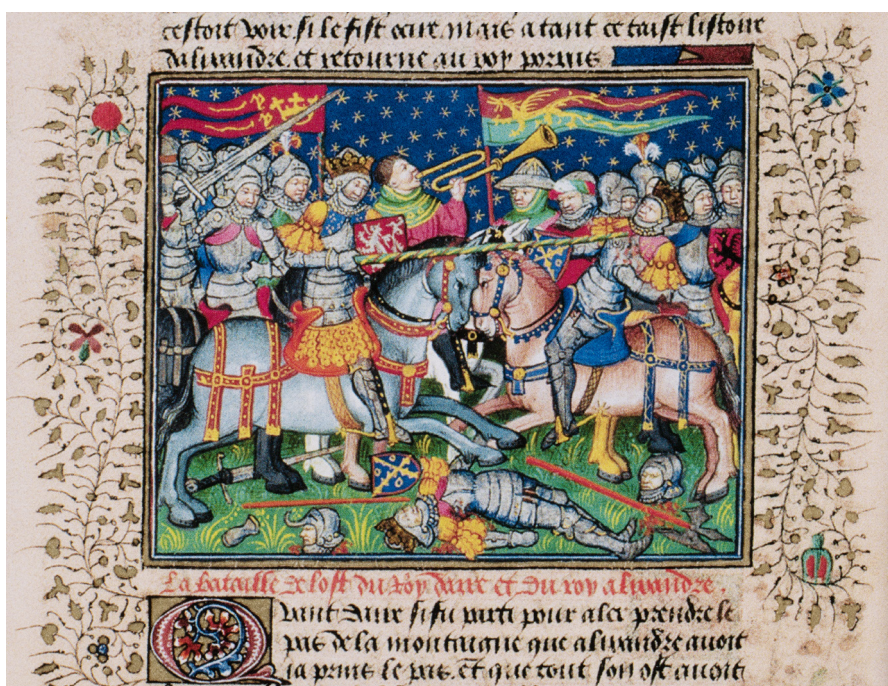 cestoit voir si le fist ocire. mais a tant ce taist listoire
dalixandre. et retourne au roy porrus
La bataille de lost du Roy daire et du roy alixandre.
Quant daire si fu parti pour aler prendre le
pas de la montaigne que alixandre auoit
ia prins le pas. et que tout son ost auoit